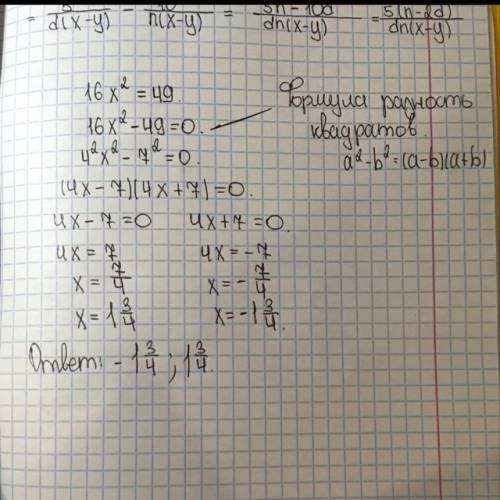 = 5/d(x-y) - 10/n(x-y) = 5n-10d/dn(x-y) = 5(n-2d)/dn(x-y)
16x² = 49.
Формула разность
16x² - 49 = 0.
квадратов.
4²x² - 7² = 0.
a²-b²=(a-b)(a+b)
(4x-7)(4x+7)=0.
4x-7=0 4x+7=0.
4x=7 4x=-7
x=7/4 x=-7/4
x=1 3/4 x=-1 3/4.
Ответ: -1 3/4 ; 1 3/4.